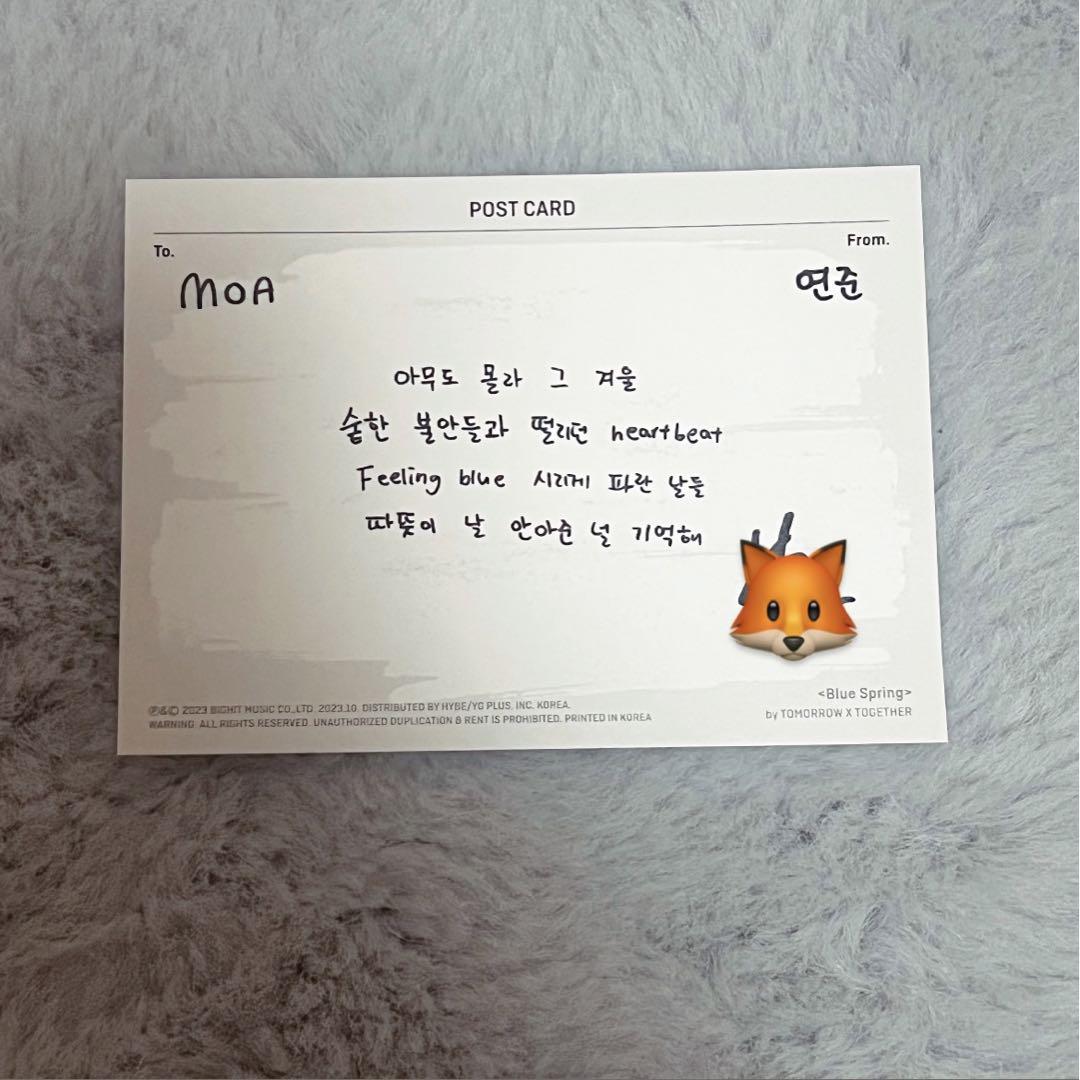 POST CARD
To.
From.
MOA
연준
아무도 몰라 그 겨울
숱한 불안들과 떨리던 heartbeat
Feeling blue 시리게 파란 날들
따뜻이 날 안아준 널 기억해
<Blue Spring>
by TOMORROW X TOGETHER
℗&© 2023 BIGHIT MUSIC CO.,LTD. 2023.10. DISTRIBUTED BY HYBE/YG PLUS, INC. KOREA.
WARNING: ALL RIGHTS RESERVED. UNAUTHORIZED DUPLICATION & RENT IS PROHIBITED. PRINTED IN KOREA